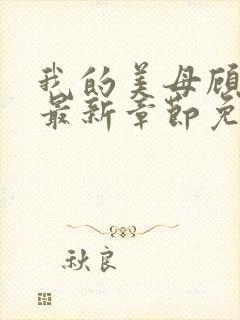 我的美母顾
最新章节免
秋良